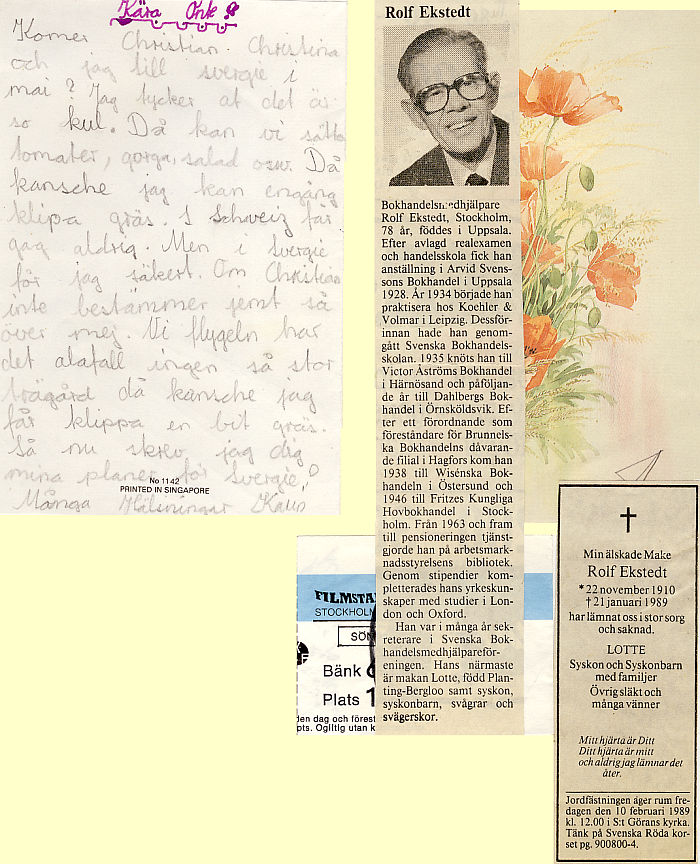 Kära Onk
Komer Christian. Christina
och jag till svergie i
mai? Jag tycker at det är
so kul. Då kan vi sätta
tomater, gorga, salad osw. Då
kansche jag kan engång
klipa gräs. I Schweiz får
gag aldrig. Men i Svergie
för jag säkert. Om Christian
inte bestämmer jemt så
över mej. Vi flygeln har
det alafall ingen så stor
trägård då kansche jag
får klippa en bit gräs.
Så nu skrev jag dig
mina planer för Svergie!
Många Hälsningar
No 1142
PRINTED IN SINGAPORE
Rolf Ekstedt
Bokhandelsmedhjälpare
Rolf Ekstedt, Stockholm,
78 år, föddes i Uppsala.
Efter avlagd realexamen
och handelsskola fick han
anställning i Arvid Svens-
sons Bokhandel i Uppsala
1928. År 1934 började han
praktisera hos Koehler &
Volmar i Leipzig. Dessför-
innan hade han genom-
gått Svenska Bokhandels-
skolan. 1935 knöts han till
Victor Åströms Bokhandel
i Härnösand och påföljan-
de år till Dahlbergs Bok-
handel i Örnsköldsvik. Ef-
ter ett förordnande som
föreståndare för Brunnels-
ka Bokhandelns dåvaran-
de filial i Hagfors kom han
1938 till Wisénska Bok-
handeln i Östersund och
1946 till Fritzes Kungliga
Hovbokhandel i Stock-
holm. Från 1963 och fram
till pensioneringen tjänst-
gjorde han på arbetsmark-
nadsstyrelsens bibliotek.
Genom stipendier kom-
pletterades hans yrkeskun-
skaper med studier i Lon-
don och Oxford.
Han var i många år sek-
reterare i Svenska Bok-
handelsmedhjälpareför-
eningen. Hans närmaste
är makan Lotte, född Plan-
ting-Bergloo samt syskon,
syskonbarn, svågrar och
svägerskor.
FILMSTA
STOCKHOLM
SÖN
Bänk
Plats 1
den dag och förest
pts. Ogiltig utan k
Min älskade Make
Rolf Ekstedt
* 22 november 1910
† 21 januari 1989
har lämnat oss i stor sorg
och saknad.
LOTTE
Syskon och Syskonbarn
med familjer
Övrig släkt och
många vänner
Mitt hjärta är Ditt
Ditt hjärta är mitt
och aldrig jag lämnar det
åter.
Jordfästningen äger rum fre-
dagen den 10 februari 1989
kl. 12.00 i S:t Görans kyrka.
Tänk på Svenska Röda kor-
set pg. 900800-4.